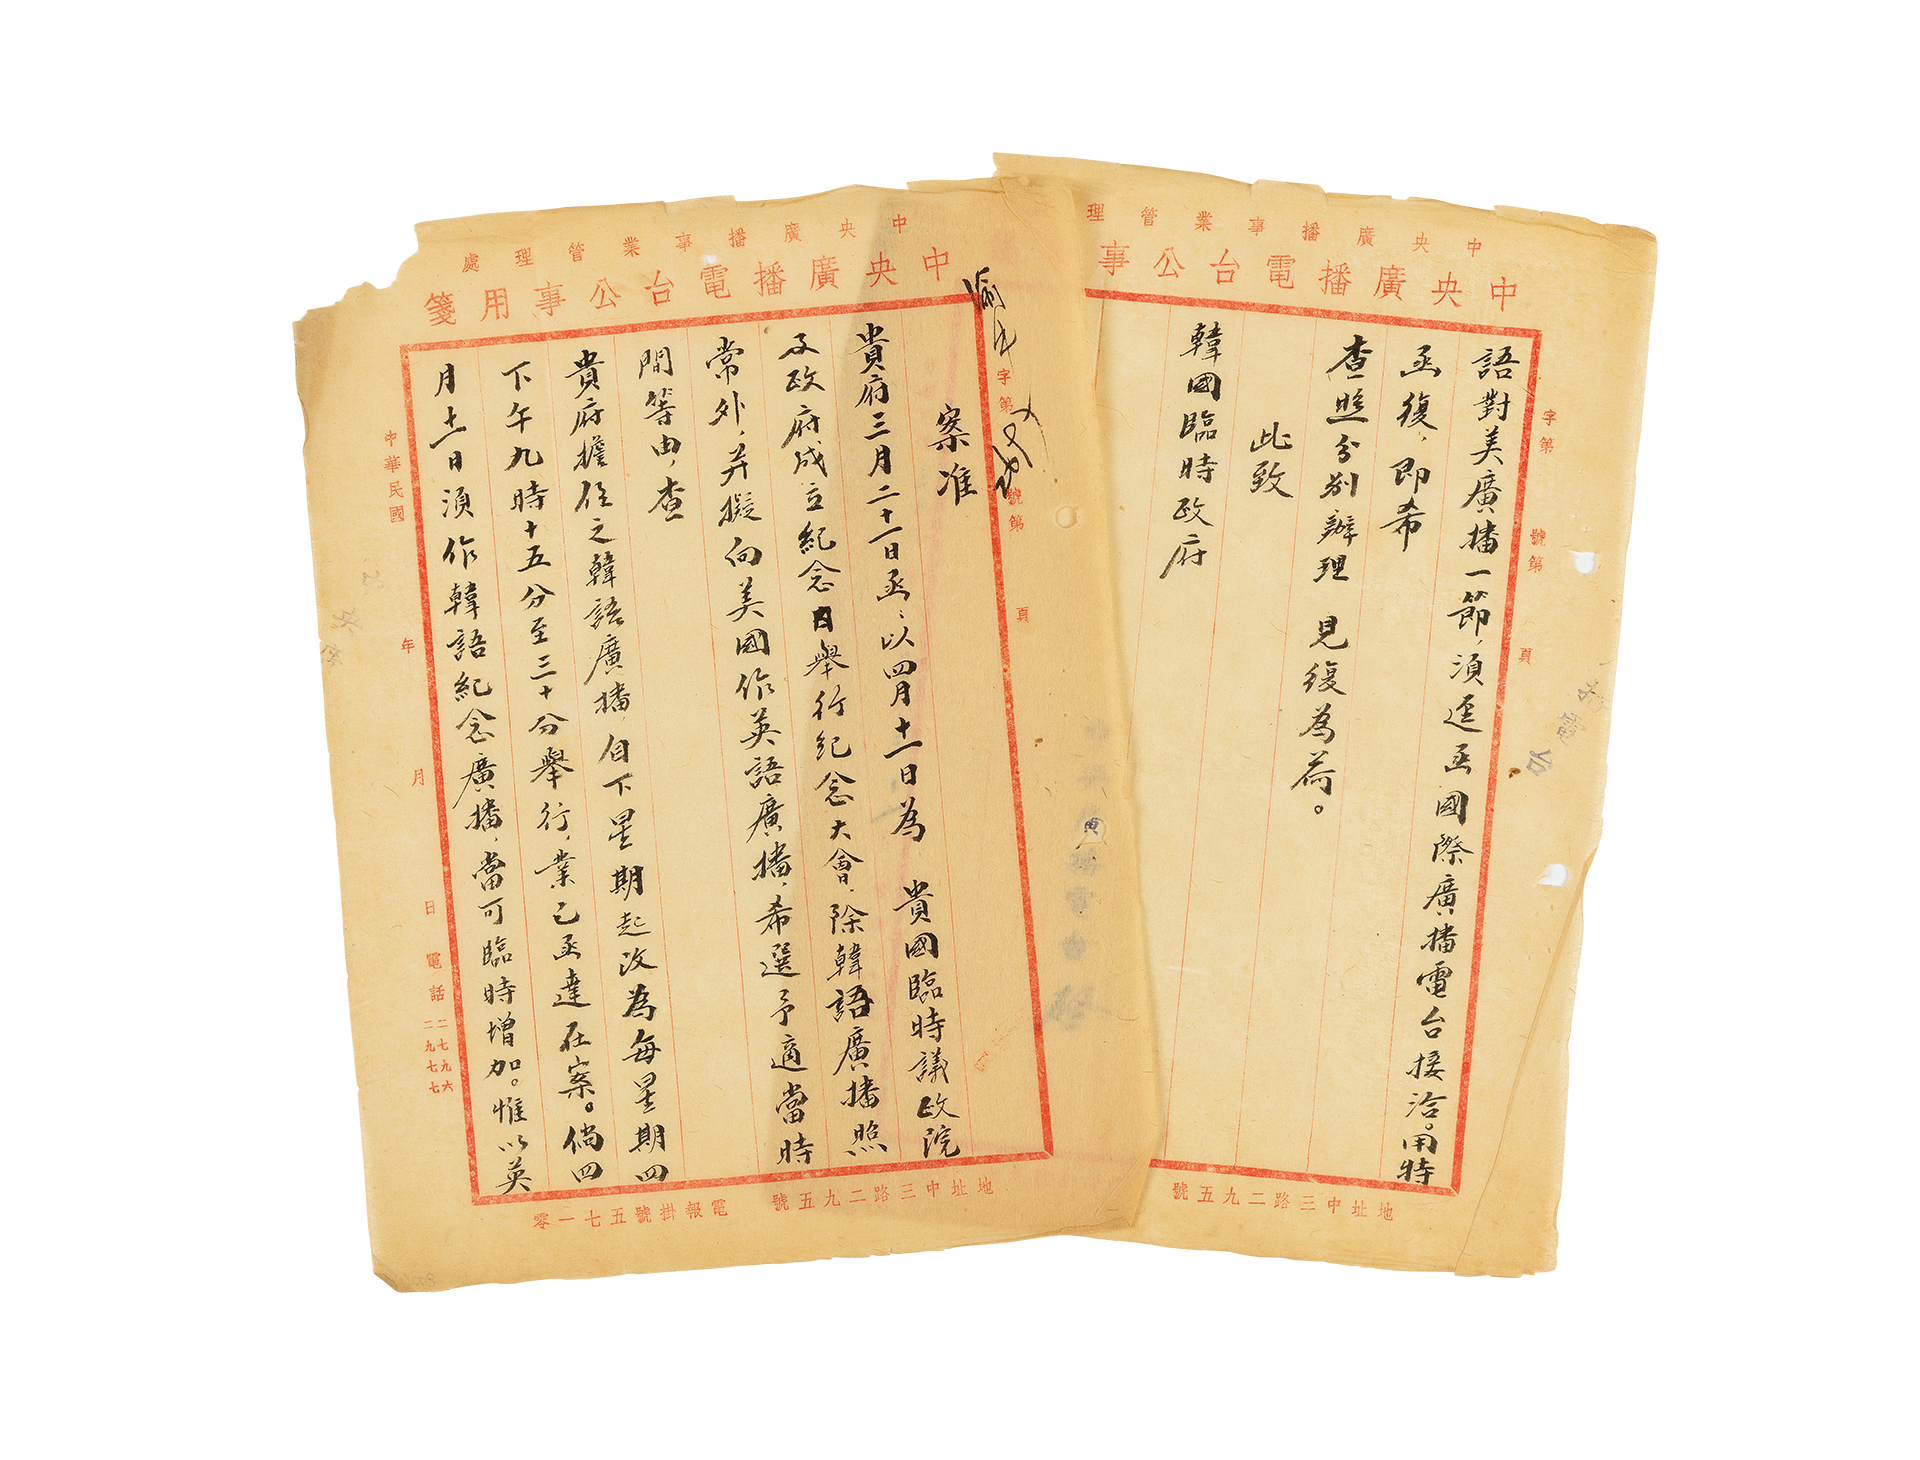 中央廣播事業管理處
中央廣播電台公事用箋
字第
號第
頁
案准
貴府三月二十一日函：以四月十一日為 貴國臨時議政院
及政府成立紀念日舉行紀念大會，除韓語廣播照
常外，并擬向美國作英語廣播，希選予適當時
間等由，查
貴府擔任之韓語廣播，自下星期起改為每星期四
下午九時十五分至三十分舉行，業已函達在案。倘四
月十一日須作韓語紀念廣播，當可臨時增加。惟以英
中華民國
年
月
日
電話 二七九六
二九七七
地址中三路二九五號
電報掛號五七一零
中央廣播事業管理
中央廣播電台公事
字第
號第
頁
語對美廣播一節，須逕函國際廣播電台接洽。用特
函復，即希
查照分別辦理 見復為荷。
此致
韓國臨時政府
地址中三路二九五號